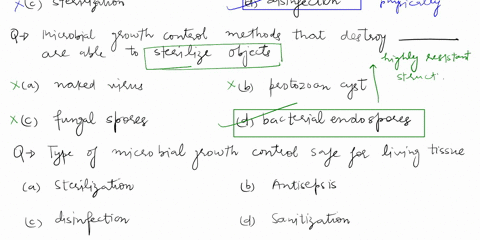 x(c) sterilization (d) disinfection physically
Q→ Microbial growth control methods that destroy ________
are able to sterilize objects
highly resistant
struct.
x(a) naked virus x(b) protozoan cyst
x(c) fungal spores (d) bacterial endospores
Q→ Type of microbial growth control safe for living tissue
(a) Sterilization (b) Antisepsis
(c) disinfection (d) Sanitization